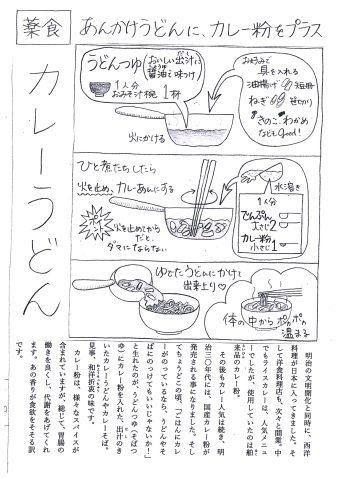 薬食
あんかけうどんに、カレー粉をプラス
カレーうどん
うどんつゆ
おいしい出汁に
醤油で味つけ
1人分
おみそ汁椀 1杯
火にかける
お好みで
具を入れる
油揚げ 短冊
ねぎ
きのこ、わかめ
などもGood!
ひと煮たちしたら
火を止め、カレーあんにする
ポイント
火を止めてから
だと、
ダマにならない
水溶き
1人分
でんぷん
大さじ2
カレー粉
小さじ1
ゆでたうどんにかけて
出来上り♡
体の中からポカポカ
温まる
明治の文明開化と同時に、西洋
料理が日本に入ってきました。そ
して洋食料理店も、次々と開業。中
でもライスカレーは、人気メニュ
ーでしたが、使用していたのは舶
来品のカレー粉。
その後もカレー人気は続き、明
治三〇年代には、国産カレー粉が
発売される事になりました。そし
てちょうどこの頃、「ごはんにカレ
ーがのっているなら、うどんやそ
ばにのっけてもいいじゃないか!」
と生れたのが、うどんつゆ・そばつ
ゆにカレー粉を入れた、出汁のき
いたカレーうどんやカレーそば。
見事、和洋折衷の味です。
カレー粉は、様々なスパイスが
含まれていますが、総じて、胃腸の
働きを良くし、代謝をあげてくれ
ます。あの香りが食欲をそそる訳
です。